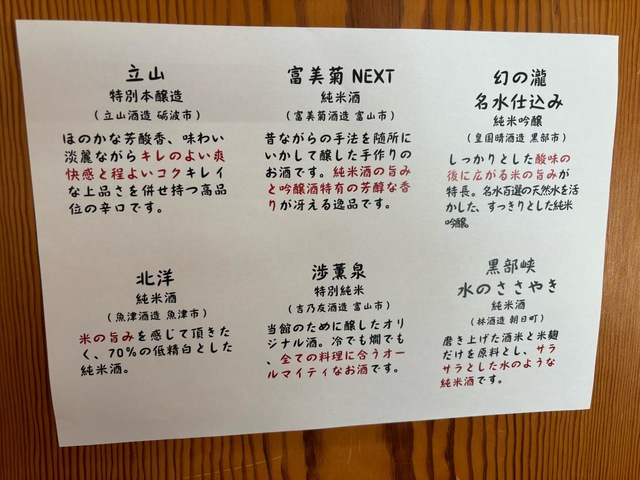 立山
特別本醸造
(立山酒造 砺波市)
ほのかな芳酸香、味わい
淡麗ながらキレのよい爽
快感と程よいコクキレイ
な上品さを併せ持つ高品
位の辛口です。
富美菊 NEXT
純米酒
(富美菊酒造 富山市)
昔ながらの手法を随所に
いかして醸した手作りの
お酒です。純米酒の旨み
と吟醸酒特有の芳醇な香
りが冴える逸品です。
幻の瀧
名水仕込み
純米吟醸
(皇国晴酒造 黒部市)
しっかりとした酸味の
後に広がる米の旨みが
特長。名水百選の天然水を活
かした、すっきりとした純米
吟醸。
北洋
純米酒
(魚津酒造 魚津市)
米の旨みを感じて頂きた
く、70%の低精白とした
純米酒。
渉薫泉
特別純米
(吉乃友酒造 富山市)
当館のために醸したオリ
ジナル酒。冷でも燗でも
、全ての料理に合うオー
ルマイティなお酒です。
黒部峡
水のささやき
純米酒
(林酒造 朝日町)
磨き上げた酒米と米麹
だけを原料とし、サラ
サラとした水のような
純米酒です。